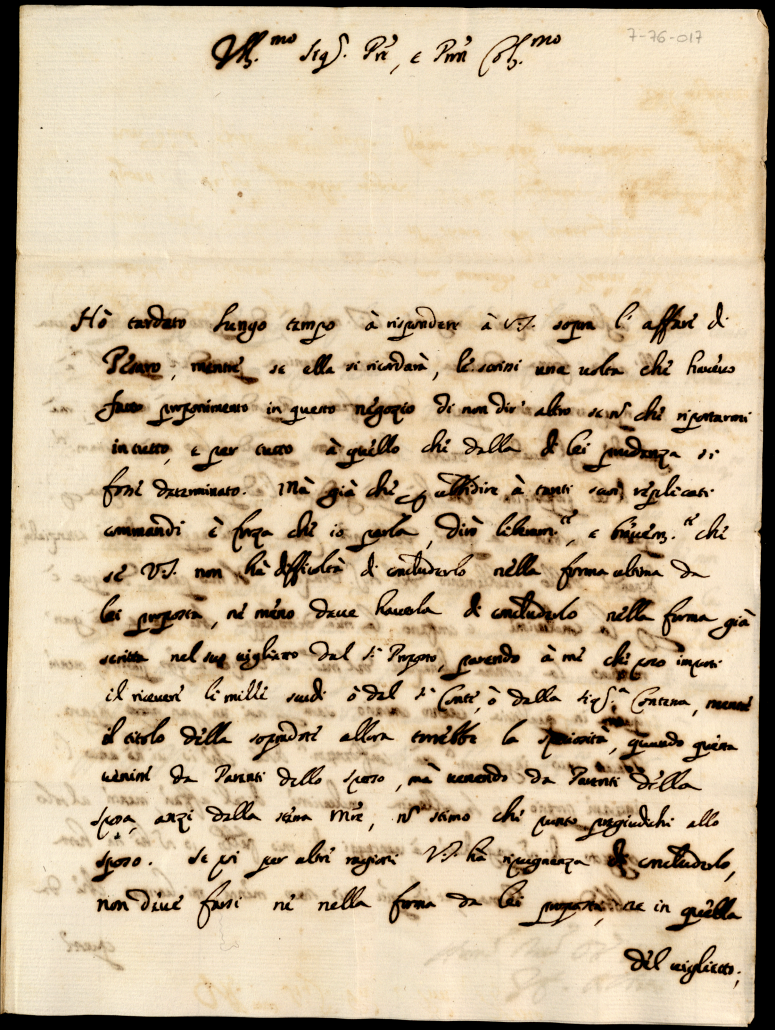 7-76-017
Ill.mo Sig.r Pré, e Prõn Col.mo
Hò tardato lungo tempo à rispondere à V.S. sopra l'affare di
Pesaro, mentre, se ella si ricordarà, le scrissi una volta che havevo
fatto proponimento in questo negozio di non dir' altro se nõ che riportarmi
in tutto, e per tutto à quello che dalla di lei prudenza si
fosse determinato. Mà già che p ubbidire à tanti suoi replicati
commandi è forza che io parla, dirò liberam.te, e brevem.te che
se V.S. non hà difficoltà di concluderlo nella forma ultima da
lei proposta, nè meno deve haverla di concluderlo nella forma già
scritta nel suo viglietto dal S.r Preposto, parendo à me che poco importi
il ricevere li mille scudi ò dal S.r Conte, ò dalla Sig.ra Contessa, mentre
il titolo della sopradote allora terrebbe la speciosità, quando questa
venisse da Parenti dello sposo, mà venendo da Parenti della
sposa, anzi dalla stessa Mre, nõ stimo che punto pregiudichi allo
sposo. Se poi per altre ragioni V.S. hà ripugnanza di concluderlo,
non deve farsi nè nella forma da lei proposta, ne in quella
del viglietto;